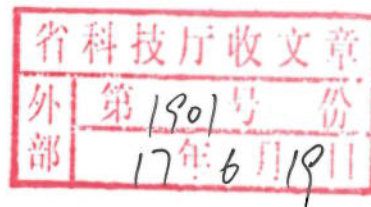 省科技厅收文章
外部
第1901号 份
17年6月19日